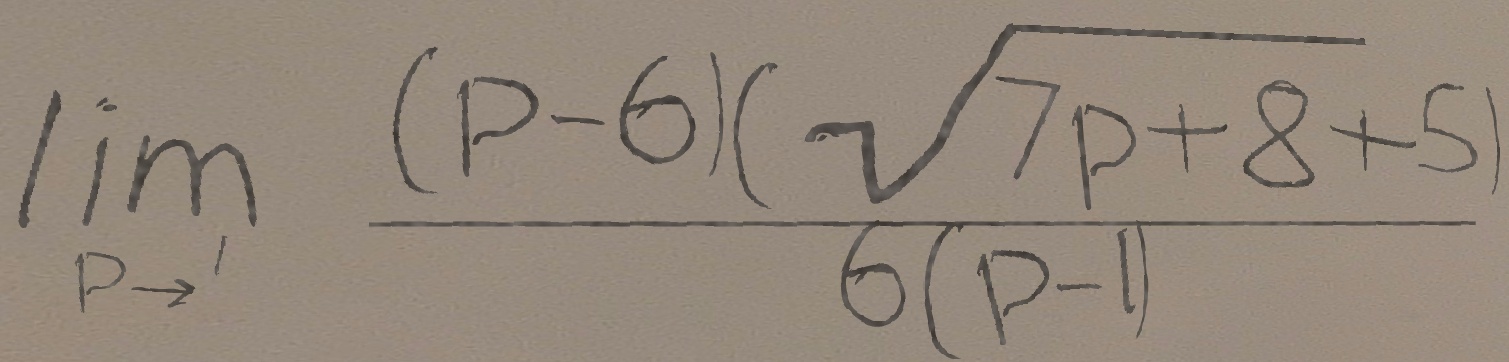 \lim_{p \to 1} \frac{(p-6)(\sqrt{7p+8}+5)}{6(p-1)}